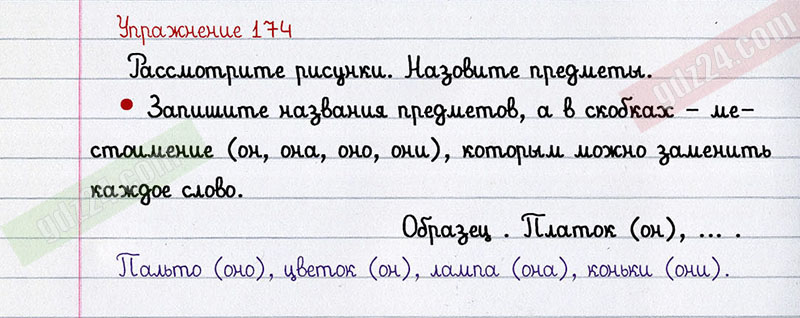 Упражнение 174
Рассмотрите рисунки. Назовите предметы.
• Запишите названия предметов, а в скобках – ме-
стоимение (он, она, оно, они), которым можно заменить
каждое слово.
Образец . Платок (он), ... .
Пальто (оно), цветок (он), лампа (она), коньки (они).
gdz24.com
gdz24.com